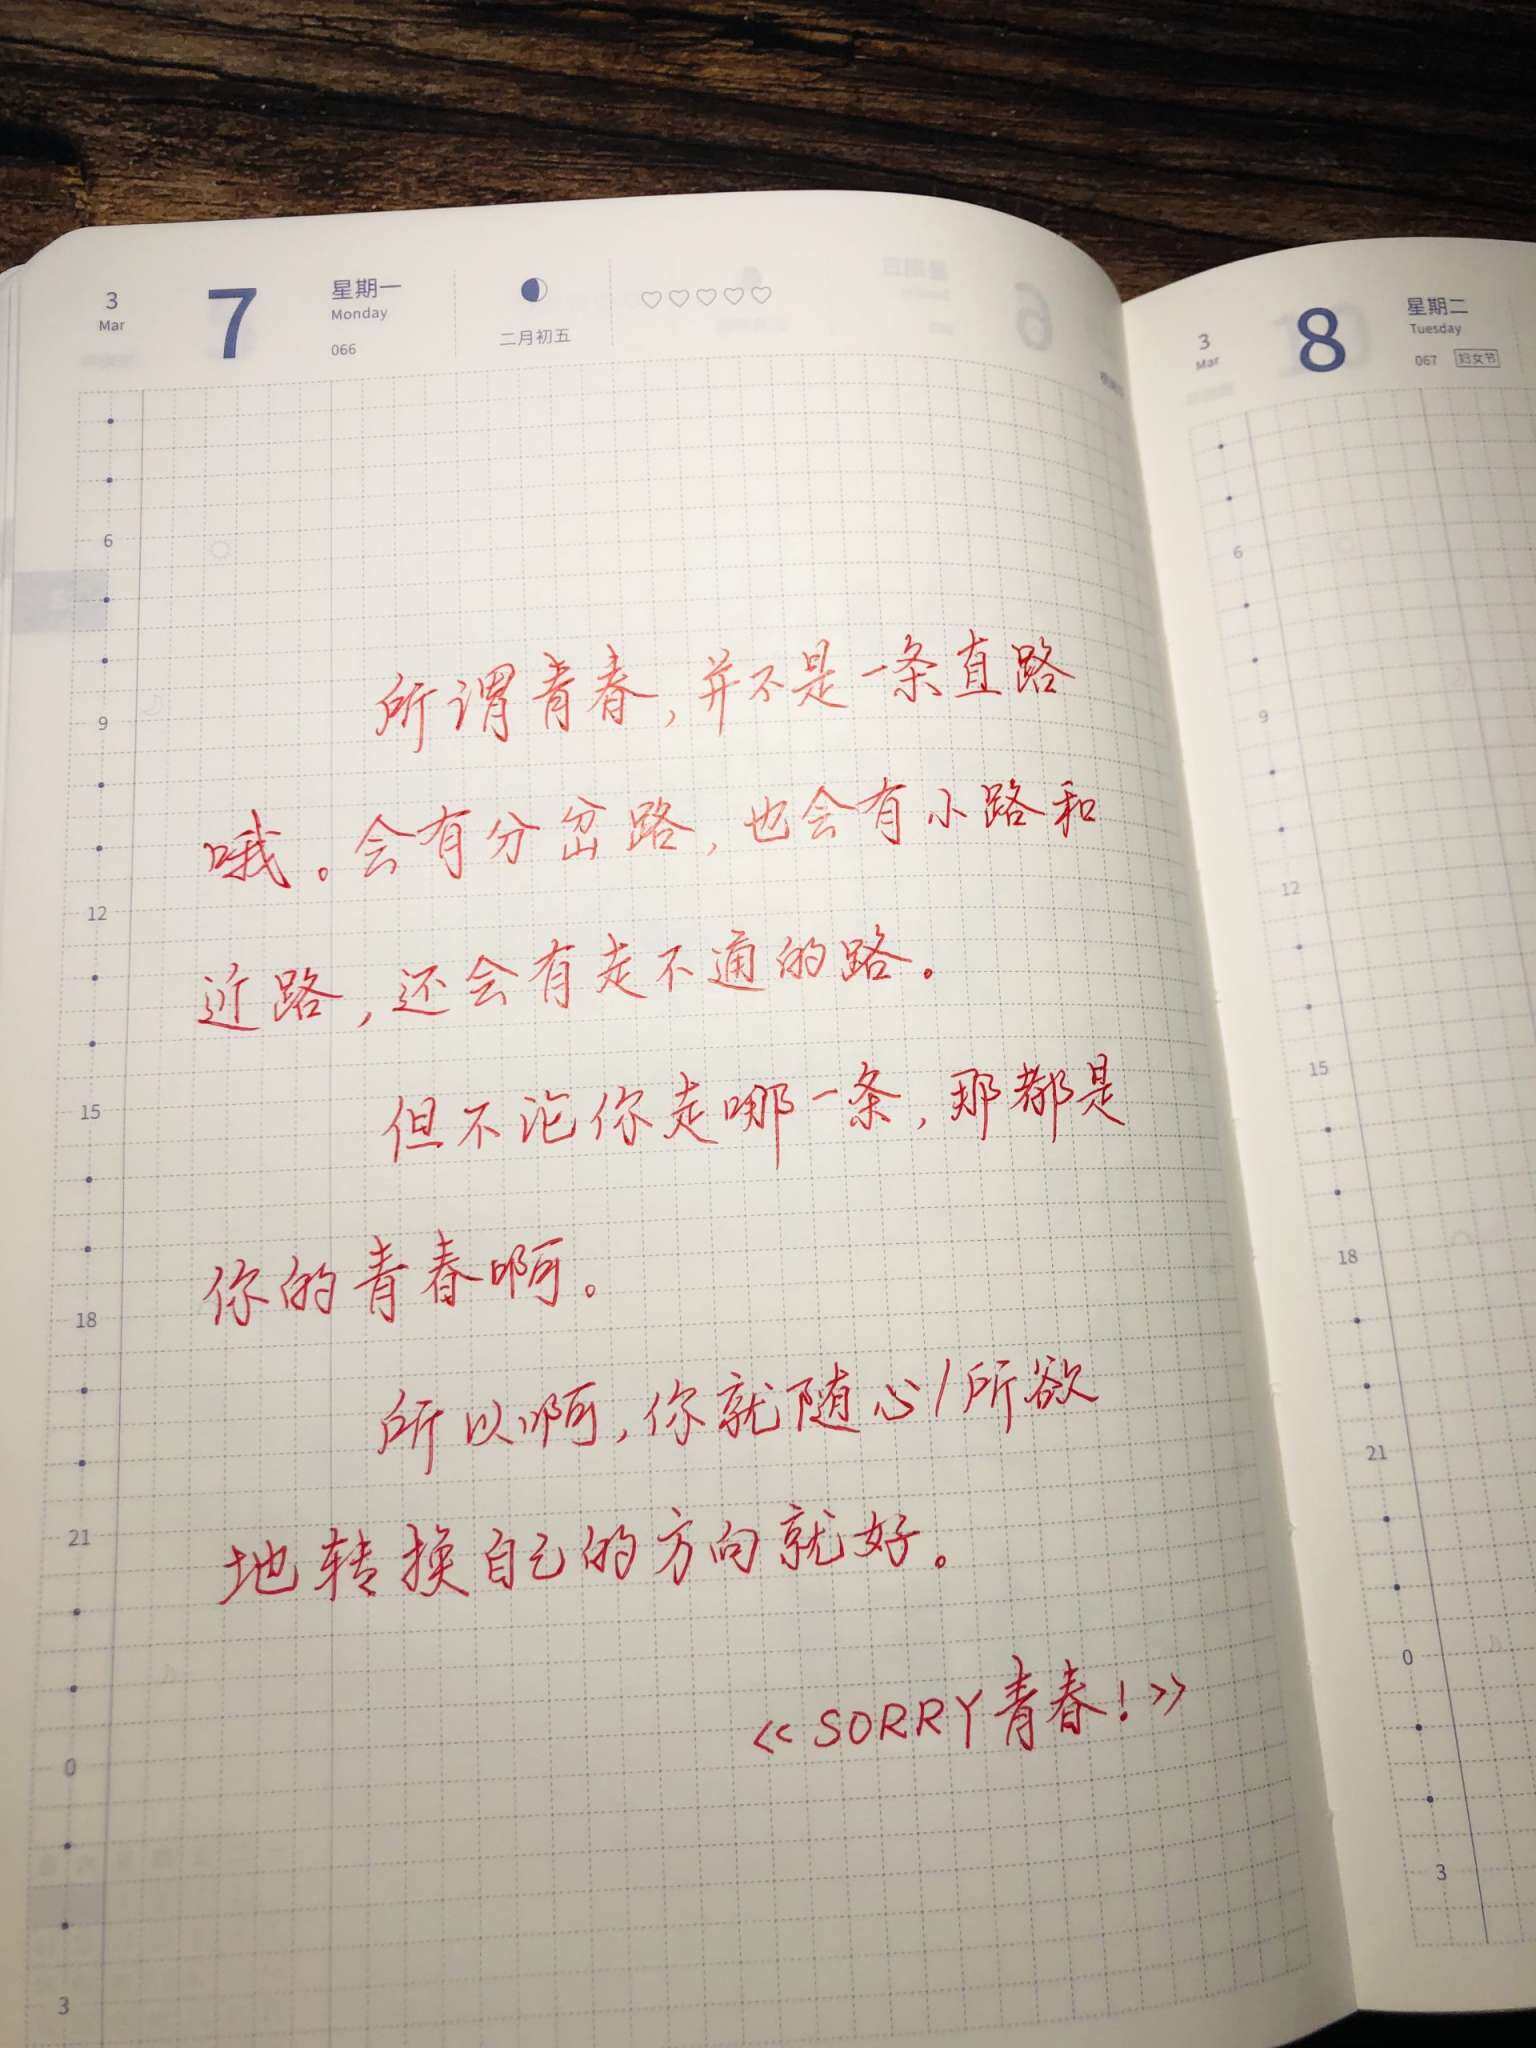 3 Mar 7 星期一 Monday 066 二月初五
所谓青春，并不是一条直路
哦。会有分岔路，也会有小路和
近路，还会有走不通的路。
但不论你走哪一条，那都是
你的青春啊。
所以啊，你就随心/所欲
地转换自己的方向就好。
《SORRY青春！》
6
9
12
15
18
21
0
3
3 Mar 8 星期二 Tuesday 067 妇女节
6
9
12
15
18
21
0
3